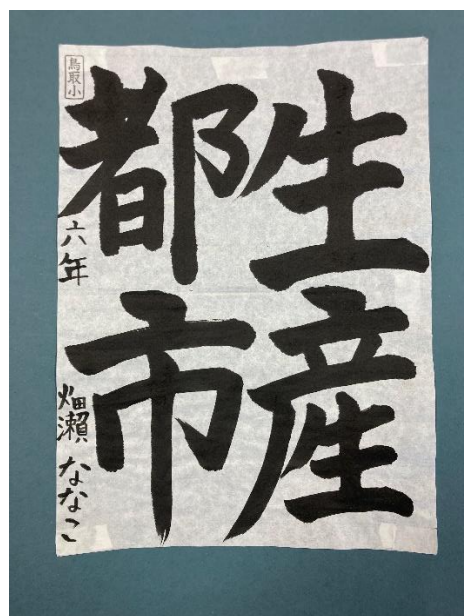 生産
都市
鳥取小
六年 畑瀬 ななこ